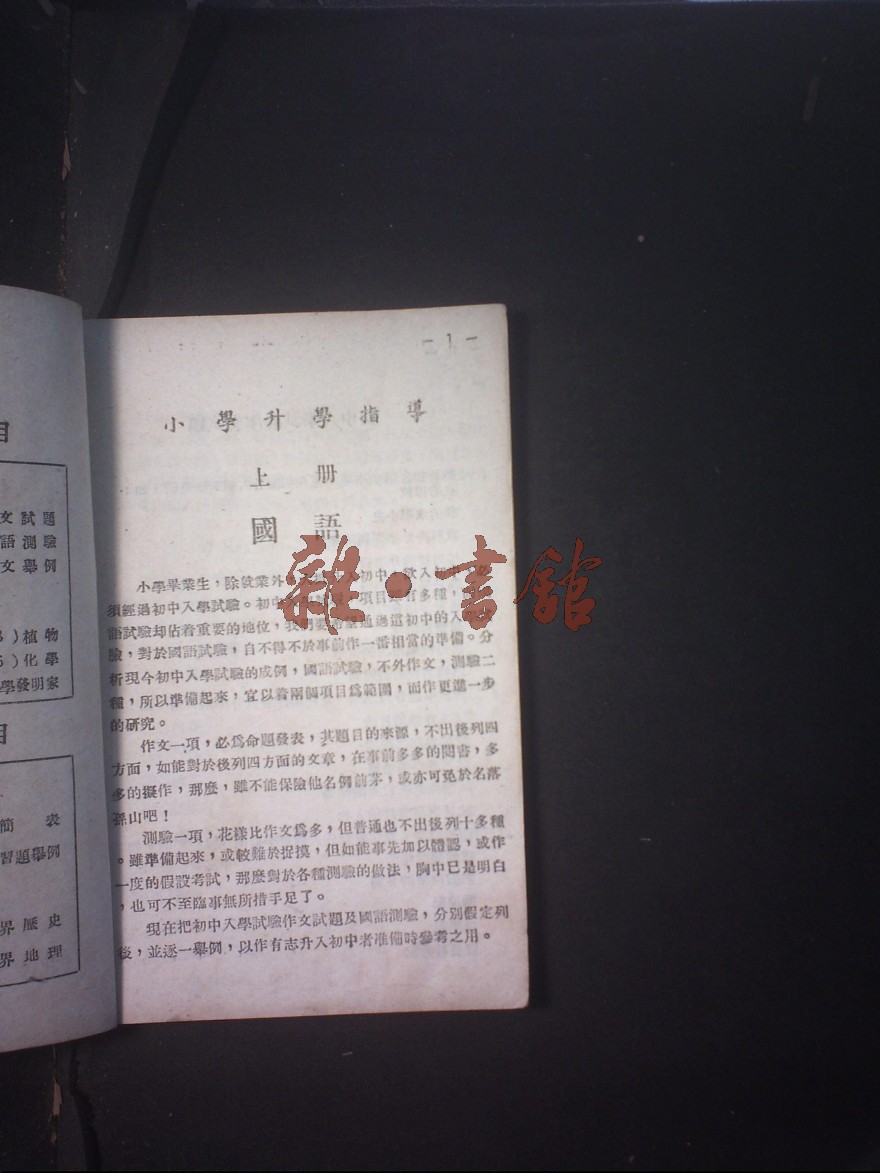 目
文試題
語測驗
文舉例
植物
化學
學發明家
目
簡表
習題舉例
界歷史
界地理
— 1 —
小學升學指導
上冊
國語
雜·書館
小學畢業生,除就業外,入初中,欲入初中,必
須經過初中入學試驗。初中項目有多種,
語試驗却佔着重要的地位,我們要通過這初中的入
驗,對於國語試驗,自不得不於事前作一番相當的準備。分
析現今初中入學試驗的成例,國語試驗,不外作文,測驗二
種,所以準備起來,宜以着兩個項目爲範圍,而作更進一步
的研究。
作文一項,必爲命題發表,其題目的來源,不出後列四
方面,如能對於後列四方面的文章,在事前多多的閱書,多
多的擬作,那麼,雖不能保險他名例前茅,或亦可免於名落
孫山吧!
測驗一項,花樣比作文爲多,但普通也不出後列十多種
。雖準備起來,或較難於捉摸,但如能事先加以體認,或作
一度的假設考試,那麼對於各種測驗的做法,胸中已是明白
,也可不至臨事無所措手足了。
現在把初中入學試驗作文試題及國語測驗,分別假定列
後,並逐一舉例,以作有志升入初中者准備時參考之用。